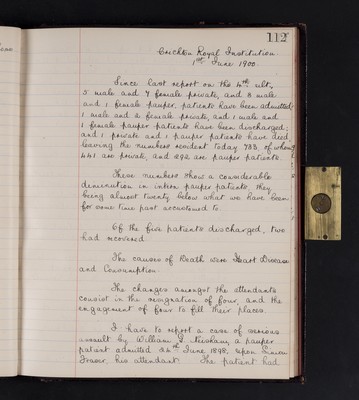 112
Crichton Royal Institution.
1st June 1900.
Since last report on the 4th ult.,
5 male and 7 female private, and 8 male
and 1 female pauper patients have been admitted;
1 male and 2 female private, and 1 male and
1 female pauper patients have been discharged;
and 1 private and 1 pauper patients have died,
leaving the numbers resident today 733, of whom
441 are private, and 292 are pauper patients.
These numbers show a considerable
diminution in intern pauper patients, they
being almost twenty below what we have been
for some time past accustomed to.
Of the five patients discharged, two
had recovered.
The causes of Death were Heart Disease
and Consumption.
The changes amongst the attendants
consist in the resignation of four, and the
engagement of four to fill their places.
I have to report a case of serious
assault by William a pauper
patient admitted 24th June 1898, upon
Fraser, his attendant. The patient had